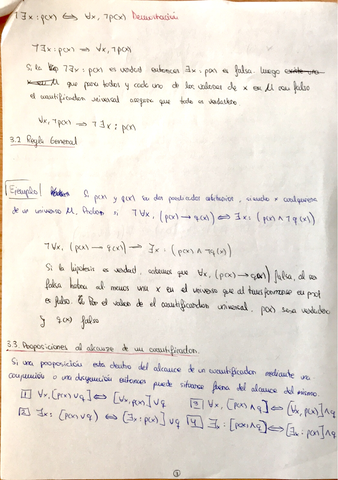 ⌐∃x : p(x) ⟺ ∀x, ⌐p(x) Demostración
⌐∃x : p(x) ⟹ ∀x, ⌐p(x)
Si ⌐∃x : p(x) es verdad entonces ∃x : p(x) es falsa. Luego
que para todos y cada uno de los valores de x en M son falso
el cuantificador universal asegura que todo es verdadero
∀x, ⌐p(x) ⟹ ⌐∃x : p(x)
3.2 Regla General
Ejemplo Si p(x) y q(x) son dos predicados arbitrarios, siendo x cualquiera
de un universo M. Probar ⌐∀x, (p(x) → q(x)) ⟺ ∃x : (p(x) ∧ ⌐q(x))
⌐∀x, (p(x) → q(x)) ⟹ ∃x : (p(x) ∧ ⌐q(x))
Si la hipótesis es verdad, sabemos que ∀x, (p(x) → q(x)) falsa, al ser
falsa habrá al menos una x en el universo que al transformarse en prop
es falso. Por el valor de el cuantificador universal, p(x) será verdadero
y q(x) falsa
3.3. Proposiciones al alcance de un cuantificador.
Si una proposición esta dentro del alcance de un cuantificador mediante una
conjunción o una disyunción entonces puede situarse fuera del alcance del mismo.
1 ∀x, [p(x) ∨ q] ⟺ [∀x, p(x)] ∨ q 2 ∀x, [p(x) ∧ q] ⟺ [∀x, p(x)] ∧ q
3 ∃x : (p(x) ∨ q) ⟺ [∃x : p(x)] ∨ q 4 ∃x : [p(x) ∧ q] ⟺ [∃x : p(x)] ∧ q